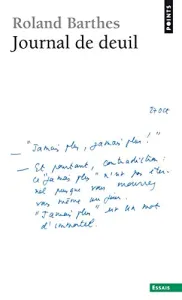 Roland Barthes
Journal de deuil
POINTS
27 oct
— "Jamais plus, jamais plus!"
— Et pourtant, contradiction :
ce "jamais plus" n'est pas éter-
nel puisque vous mourrez
vous-même un jour.
"Jamais plus" est un mot
d'immortel.
ESSAIS